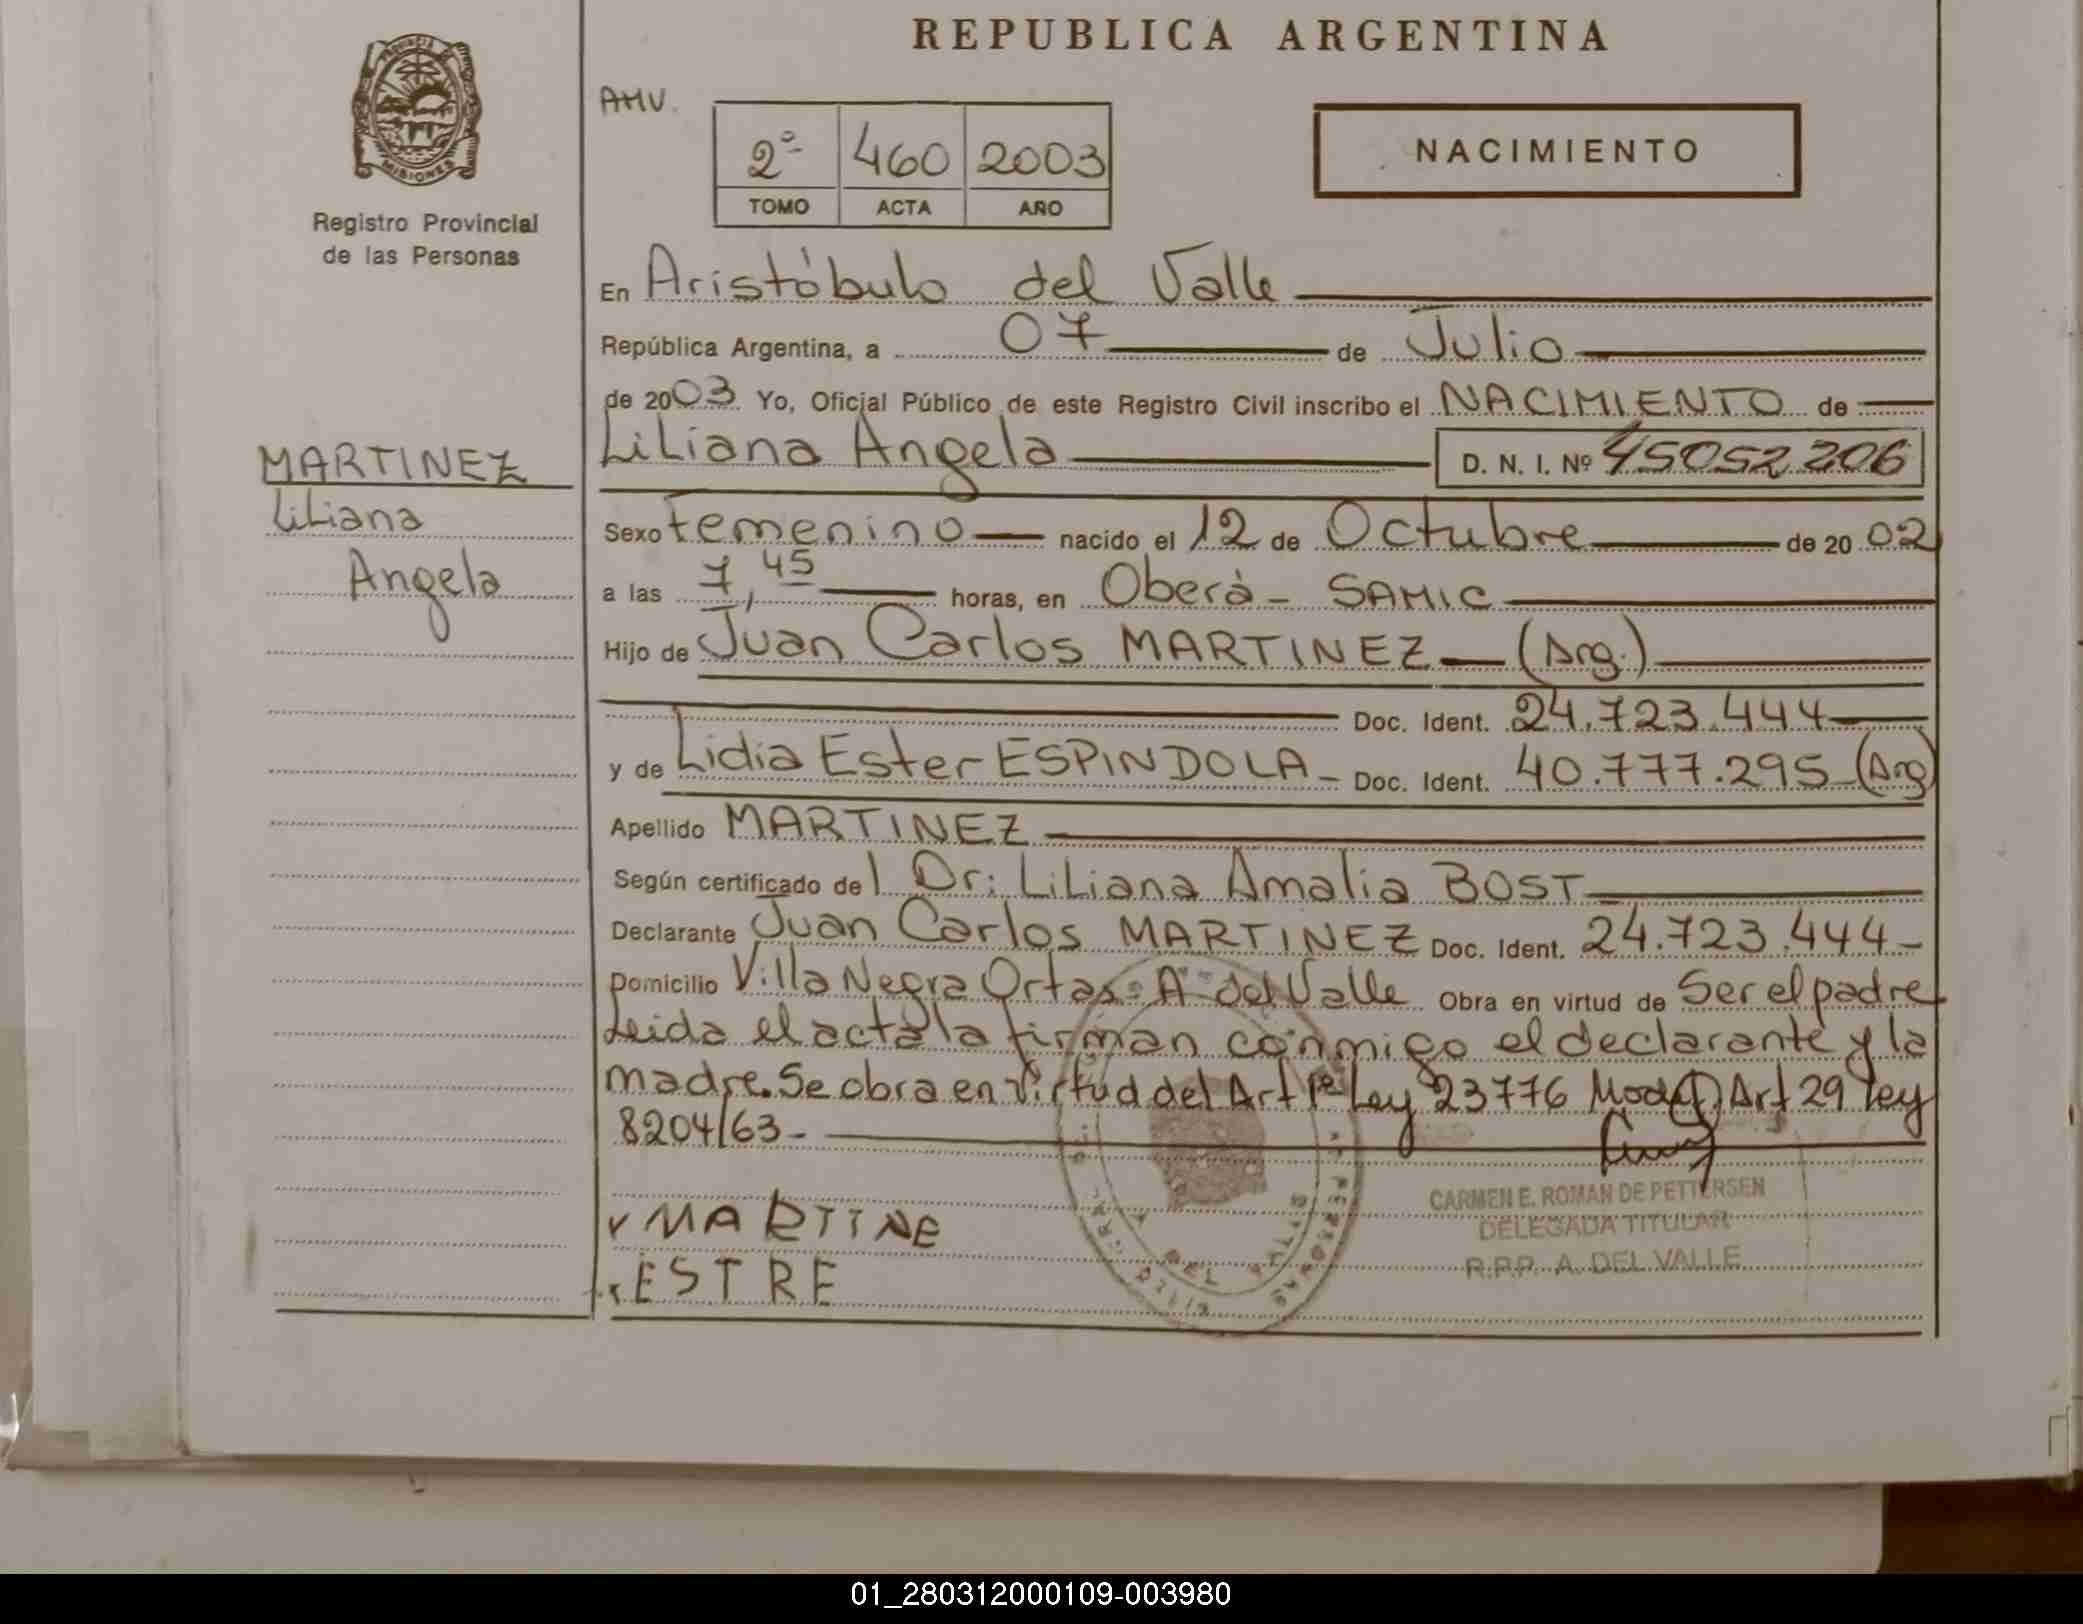 REPUBLICA ARGENTINA
PROVINCIA DE
MISIONES
Registro Provincial
de las Personas
MARTINEZ
Liliana
Angela
AMV.
2º 460 2003
TOMO ACTA AÑO
NACIMIENTO
En Aristóbulo del Valle
República Argentina, a 07 de Julio
de 2003 Yo, Oficial Público de este Registro Civil inscribo el NACIMIENTO de
Liliana Angela D. N. I. Nº 45052206
Sexo Femenino nacido el 12 de Octubre de 20 02
a las 7,45 horas, en Oberá - SAMIC
Hijo de Juan Carlos MARTINEZ (Arg.)
Doc. Ident. 24.723.444
y de Lidia Ester ESPINDOLA - Doc. Ident. 40.777.295 (Arg)
Apellido MARTINEZ
Según certificado del Dr: Liliana Amalia BOST
Declarante Juan Carlos MARTINEZ Doc. Ident. 24.723.444-
Domicilio Villa Negra Ortas - A del Valle Obra en virtud de Ser el padre
Leida el acta la firman conmigo el declarante y la
madre. Se obra en virtud del Art 1º Ley 23776 Mod Art 29 Ley
8204/63-
MARTINE
ESTRE
CARMEN E. ROMAN DE PETTERSEN
DELEGADA TITULAR
R.P.P. A. DEL VALLE
01_280312000109-003980